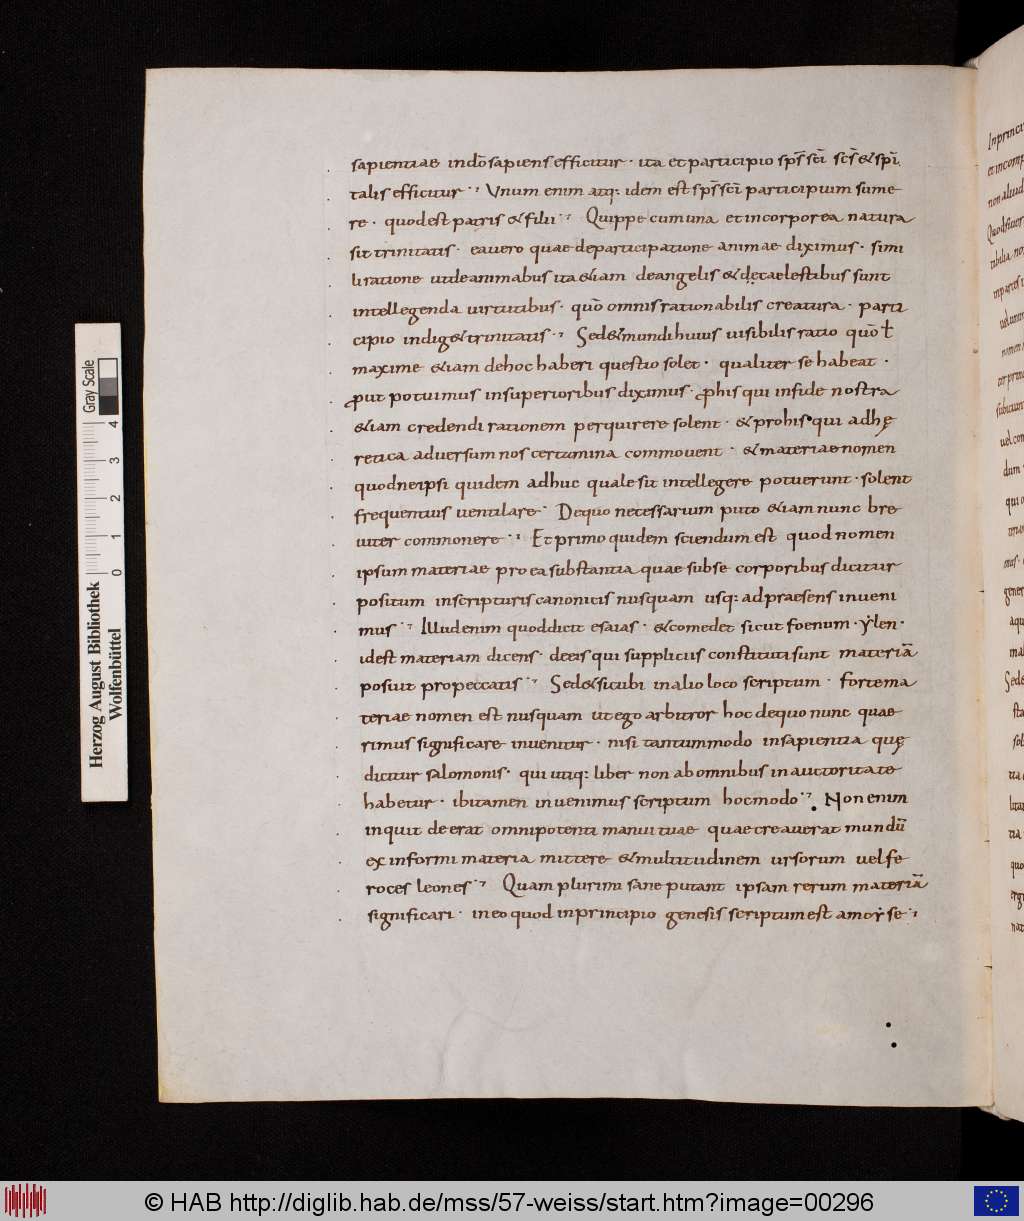 sapientiae indō sapiens efficitur · ita et participio sp̄s sc̄i sc̄s & spī
talis efficitur ·, Unum enim atq: idem est sp̄s sc̄i participium sume
re · quod est patris & filii ·, Quippe cum una et incorporea natura
sit trinitatis · ea vero quae de participatione animae diximus · simi
li ratione ut de animabus ita & iam de angelis & de caelestibus sunt
intellegenda virtutibus · quō omnis rationabilis creatura · parti
cipio indig& trinitatis ·, Sed & mundi huius visibilis ratio quō ł
maxime & iam de hoc haberi questio solet · qualiter se habeat ·
ꝓut potuimus in superioribus diximus · ꝓ his qui in fide nostra
& iam credendi rationem perquirere solent · & pro his · qui ad hę
retica adversum nos certamina commovent · & materiae nomen
quod ne ipsi quidem adhuc quale sit intellegere potuerunt · solent
frequentius ventilare · De quo necessarium puto & iam nunc bre
viter commonere ·, Et primo quidem sciendum est quod nomen
ipsum materiae pro ea substantia quae subse corporibus dicitur
positum in scripturis canonicis nusquam usq: ad praesens inveni
mus ·, Illud enim quod dicit esaias · & comedet sicut foenum · ẏlen ·
id est materiam dicens · de eis qui suppliciis constituti sunt materiā
posuit pro peccatis ·, Sed & sicubi in alio loco scriptum · forte ma
teriae nomen est nusquam ut ego arbitror hoc de quo nunc quae
rimus significare invenitur · nisi tantummodo in sapientia quę
dicitur salomonis · qui utiq: liber non ab omnibus in auctoritate
habetur · ibi tamen invenimus scriptum hoc modo ·, Non enim
inquit deerat omnipotenti manui tuae quae creaverat mundū
ex informi materia mittere & multitudinem ursorum vel fe
roces leones ·, Quam plurimi sane putant ipsam rerum materiā
significari · in eo quod in principio genesis scriptum est a moẏse ·,
Gray Scale
0 1 2 3 4
Herzog August Bibliothek
Wolfenbüttel
© HAB http://diglib.hab.de/mss/57-weiss/start.htm?image=00296